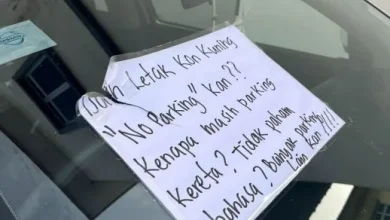 Dah Letak Kon Kuning
"No Parking" Kan??
Kenapa masih parking
Kereta? Tidak paham
bahasa? Bangat parking
Lain Kan?!!!